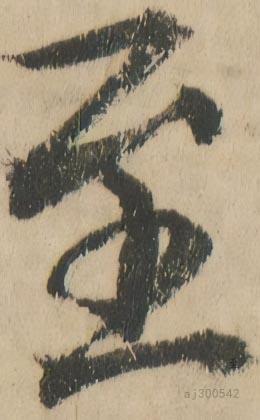 至
aj300542